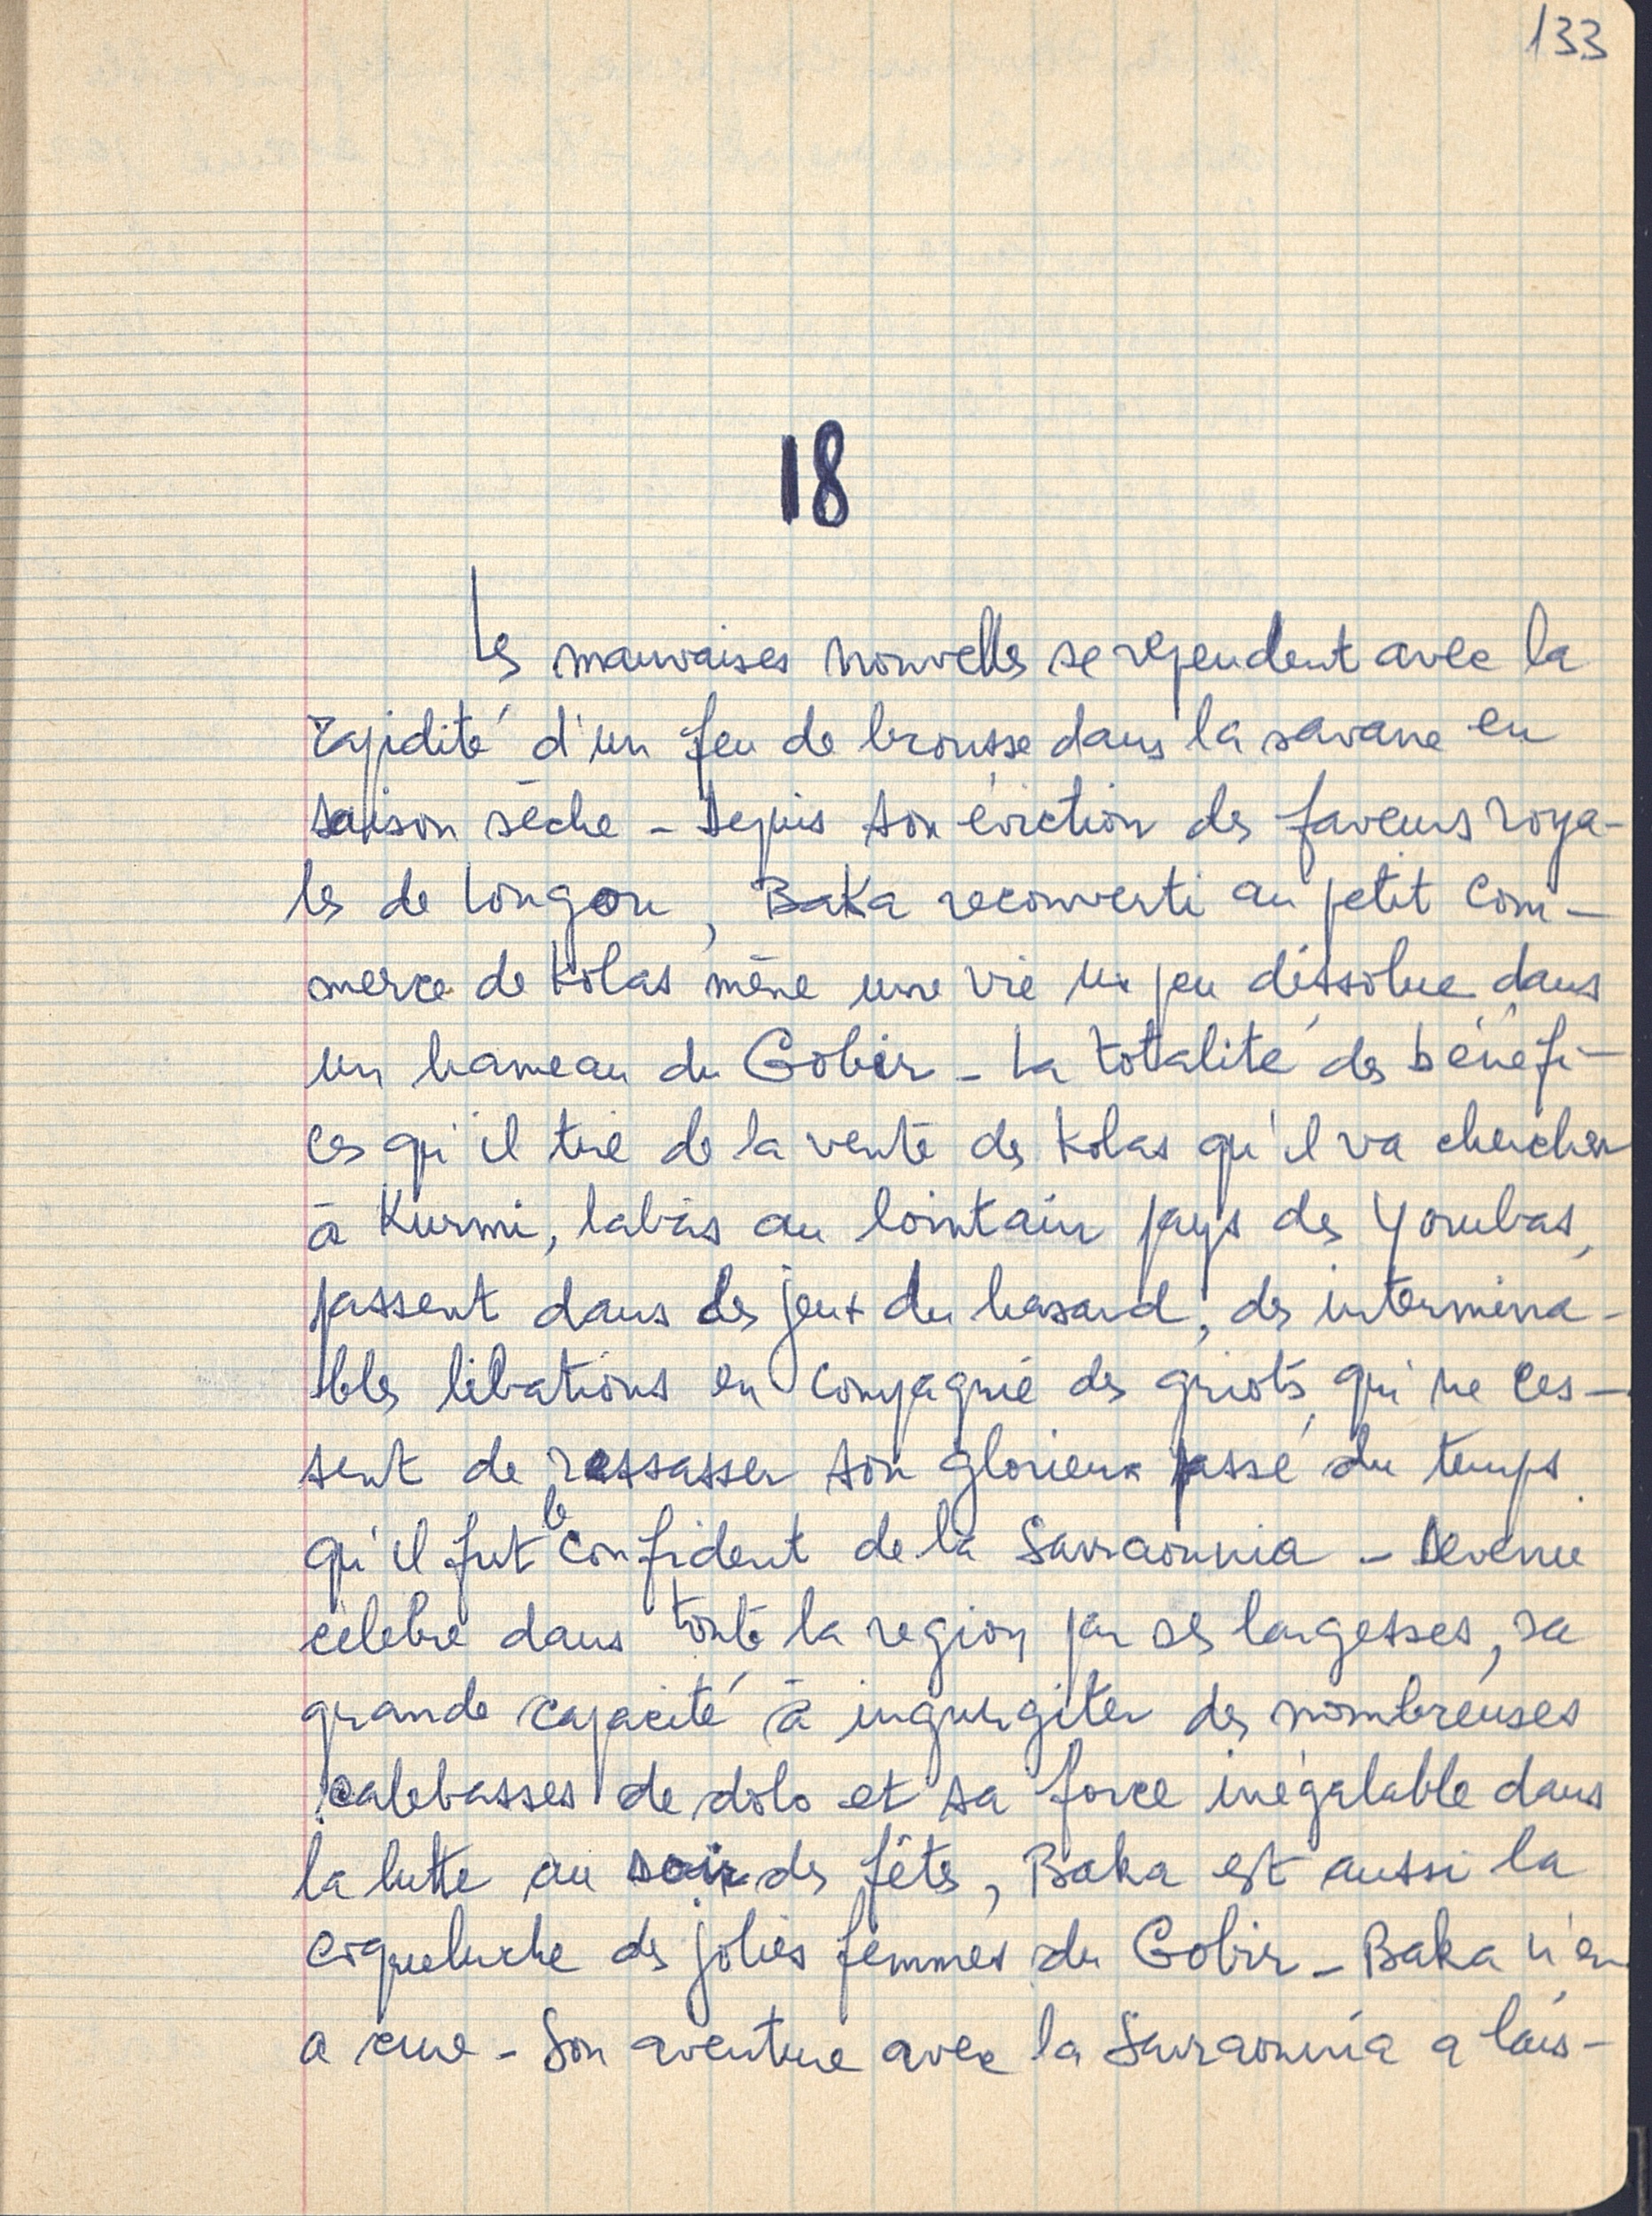 133
18
Les mauvaises nouvelles se rependent avec la
rapidité d'un feu de brousse dans la savane en
saison sèche - Depuis son éviction des faveurs roya-
les de Lougou, Baka reconverti au petit com-
merce de kolas mène une vie un peu dissolue dans
un hameau du Gobir - La totalité des bénéfi-
ces qu'il tire de la vente des kolas qu'il va chercher
à Kurmi, labàs au lointain pays des Yorubas,
passent dans des jeux du hasard, des intermina-
bles libations en compagnie des griots qui ne ces-
sent de ressasser son glorieux passé du temps
qu'il fut le confident de la Sarraounia - Devenu
célèbre dans toute la region par ses largesses, sa
grande capacité à ingurgiter des nombreuses
calebasses de dolo et sa force inégalable dans
la lutte au soir des fêtes, Baka est aussi la
coqueluche des jolies femmes du Gobir - Baka n'en
a cure - Son aventure avec la Sarraounia a lais-